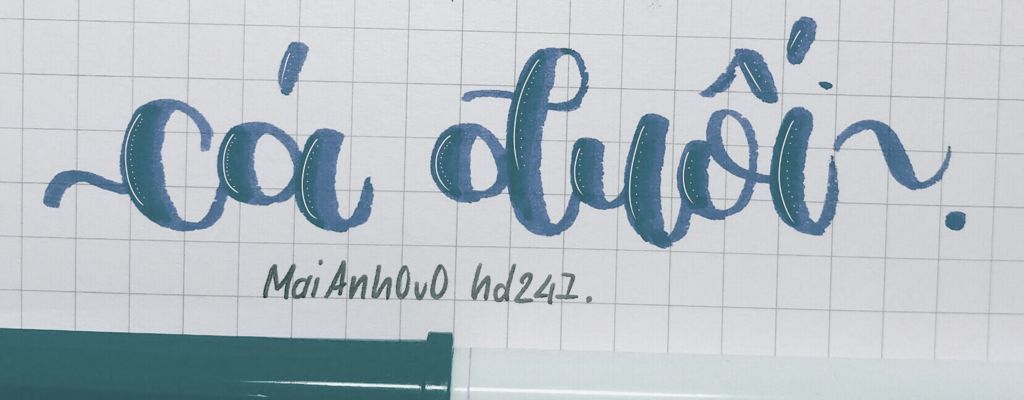 cá đuối.
MaiAnhOvO hd247.